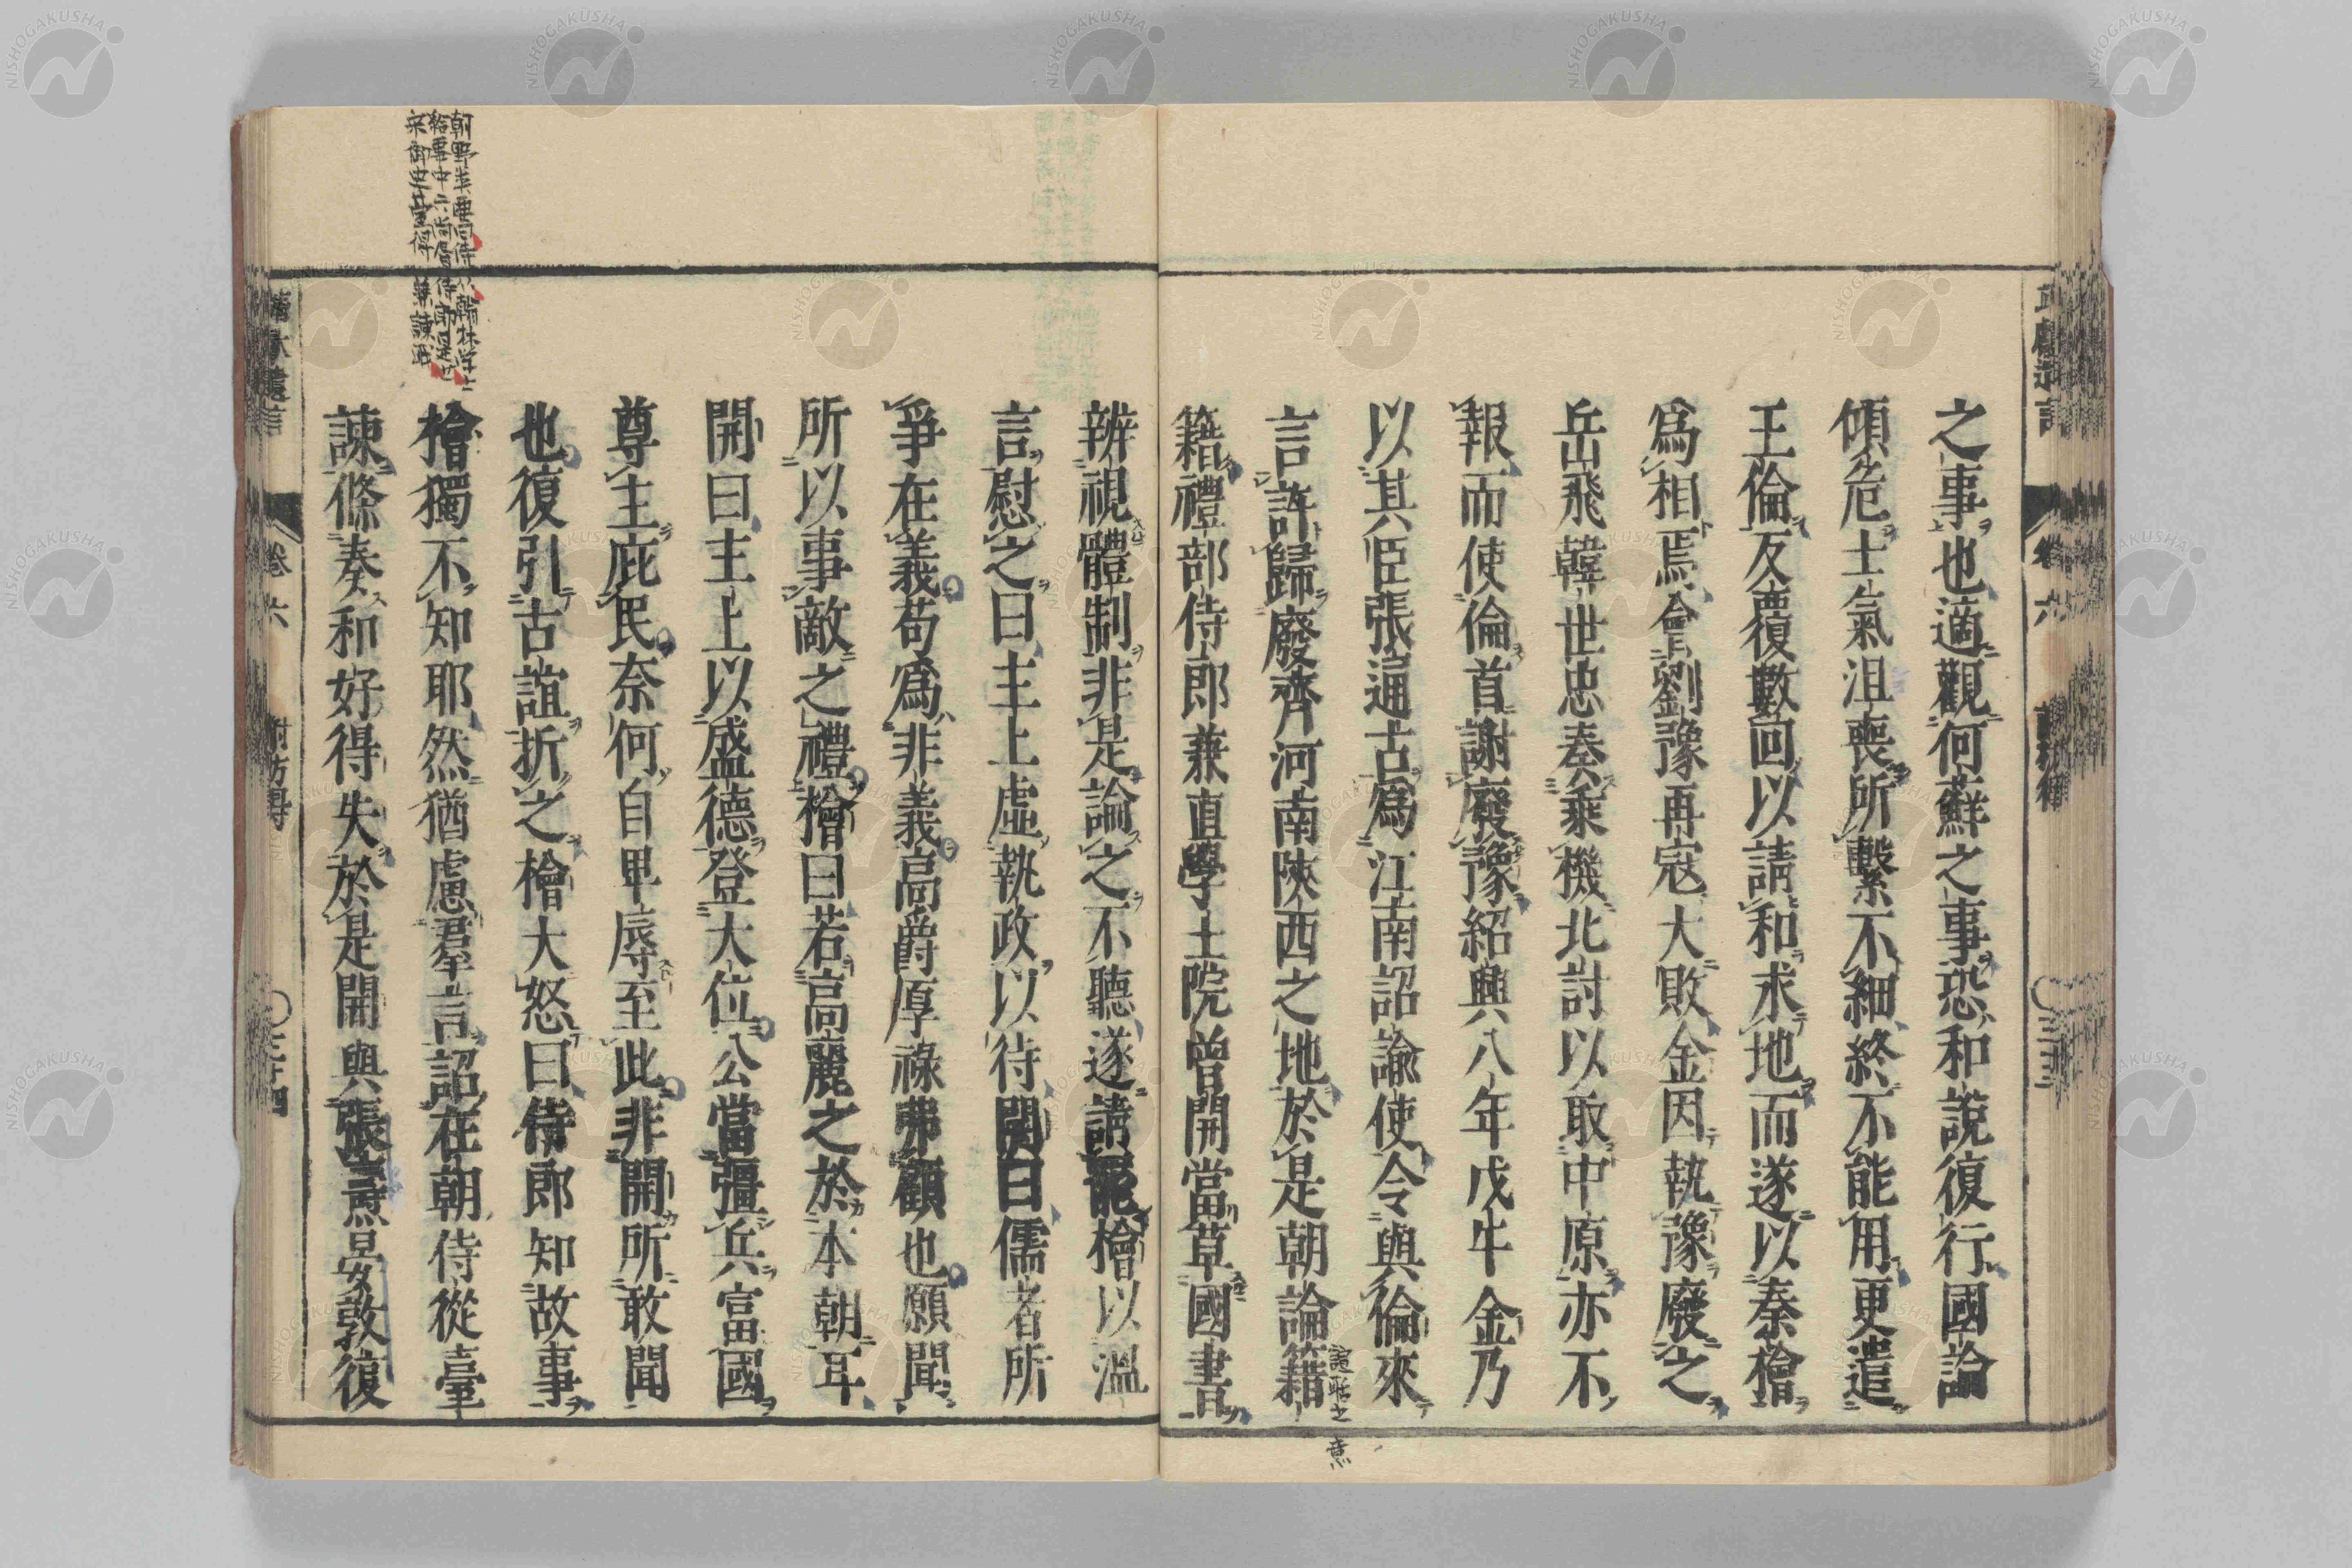 之事也適觀何蘚之事恐和說復行國論
傾危士氣沮喪所繫不細終不能用更遣
王倫反覆數回以請和求地而遂以秦檜
爲相焉會劉豫再寇大敗金因執豫廢之
岳飛韓世忠奏乘機北討以取中原亦不
報而使倫首謝廢豫紹興八年戊午金乃
以其臣張通古爲江南詔諭使令與倫來
言許歸廢齊河南陝西之地於是朝論籍
籍禮部侍郎兼直學士院曾開當草國書
辨視體制非是論之不聽遂請罷檜以溫
言慰之曰主上虛執政以待開曰儒者所
爭在義苟爲非義高爵厚祿弗顧也願聞
所以事敵之禮檜曰若高麗之於本朝耳
開曰主上以盛德登大位公當彊兵富國
尊主庇民奈何自卑辱至此非開所敢聞
也復引古誼折之檜大怒曰侍郎知故事
檜獨不知耶然猶慮羣言詔在朝侍從臺
諫條奏和好得失於是開與張燾晏敦復
卷六
三十四
NISHOGAKUSHA